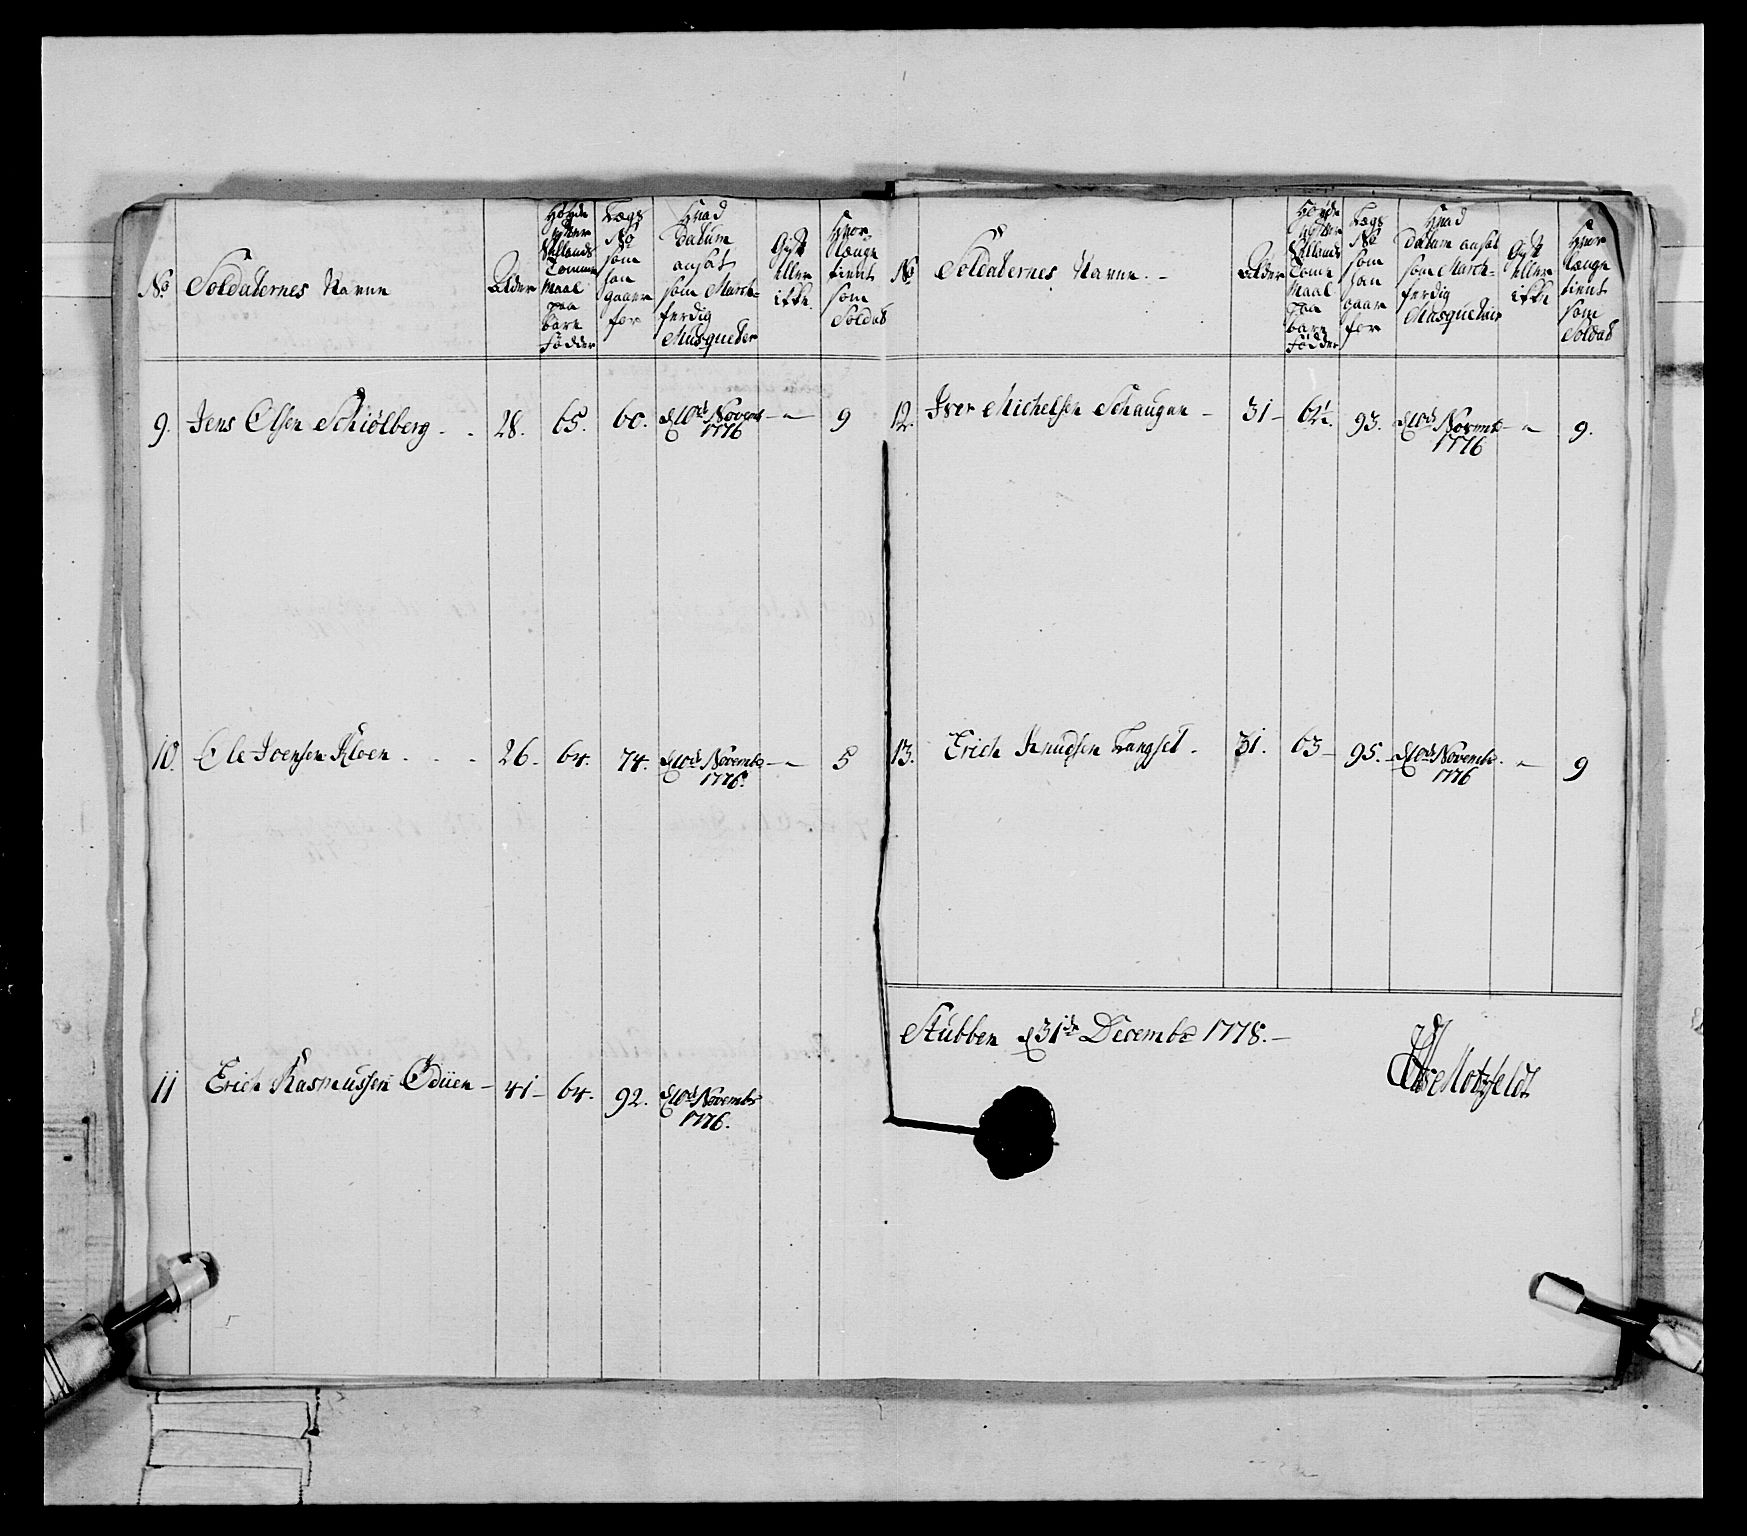 No
Soldaternes Navne
Alder
Høyde
efter
Siellands
Tomme
Maal
paa
bare
Fødder
Lægs
No
som
han
gaaer
for
Hvad
Datum
ansat
som March-
ferdig
Musqueter
Gift
eller
ikke
Hvor
længe
tient
som
Soldat
9. Jens Olsen Schiølberg - . 28. 65. 60. d 10de Novembr - " - 9
1776
10. Ole Joensen Kloen . . . 26. 64. 74. d 10de Novembr - " - 5
1776.
11 Erich Rasmussen Ödüen - 41 - 64. 92. d 10de Novembr
1776.
No
Soldaternes Navne. -
Alder
Høyde
efter
Siellands
Tome
Maal
paa
bare
Fødder
Lægs
No
som
han
gaar
for
Hvad
Datum ansat
som March-
ferdig
Musquetair
Gift
eller
ikke
Hvor
længe
tient
som
Soldat
12. Iver Michelsen Schaugen - 31 - 62½. 93. d 10de Novembr - " - 9.
1776
13. Erich Knudsen Langset - 31. 63 - 95. - d 10de Novembr. " - 9
1776
Stubben d 31de Decembr 1778. -
Motzfeldt